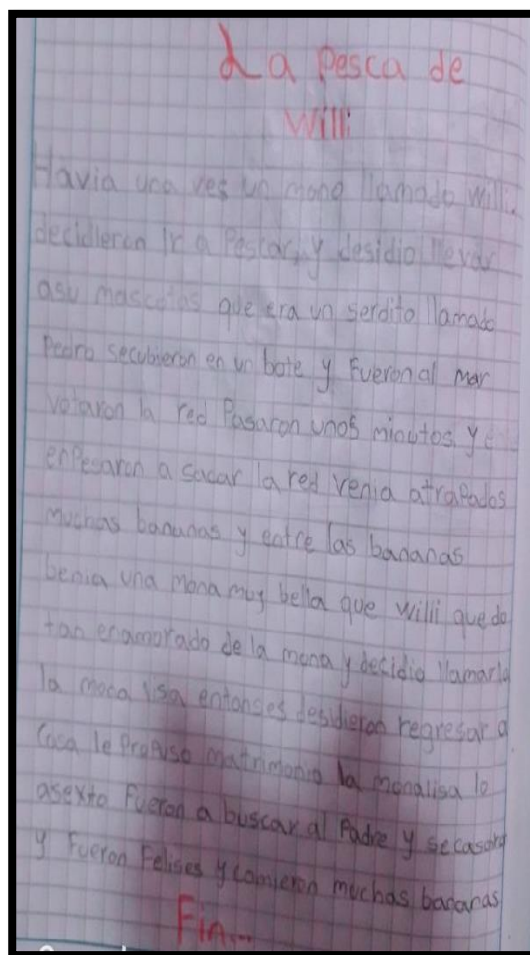 La Pesca de
Willi
Havia una ves un mono llamado willi.
decidieron ir a Pescar, y desidio llevar
asu mascotas que era un serdito llamado
Pedro secubieron en un bote y Fueron al mar
votaron la red Pasaron unos minutos y e
enPesaron a sacar la red venia atraPados
Muchas bananas y entre las bananas
benia una Mona muy bella que willi quedo
tan enamorado de la mona y decidio llamarla
la mona lisa entonses desidieron regresar a
Casa le ProPuso matrimonio la monalisa lo
asexto Fueron a buscar al Padre y secasaron
y Fueron Felises y comieron muchas bananas
Fin...